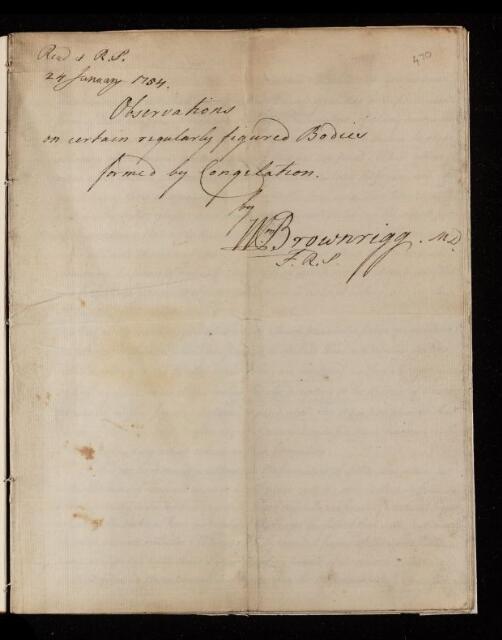 Read at R.S.
24 January 1754.
470
Observations
on certain regularly figured Bodies
formed by Congelation.
by
Wm Brownrigg. M.D.
F.R.S.